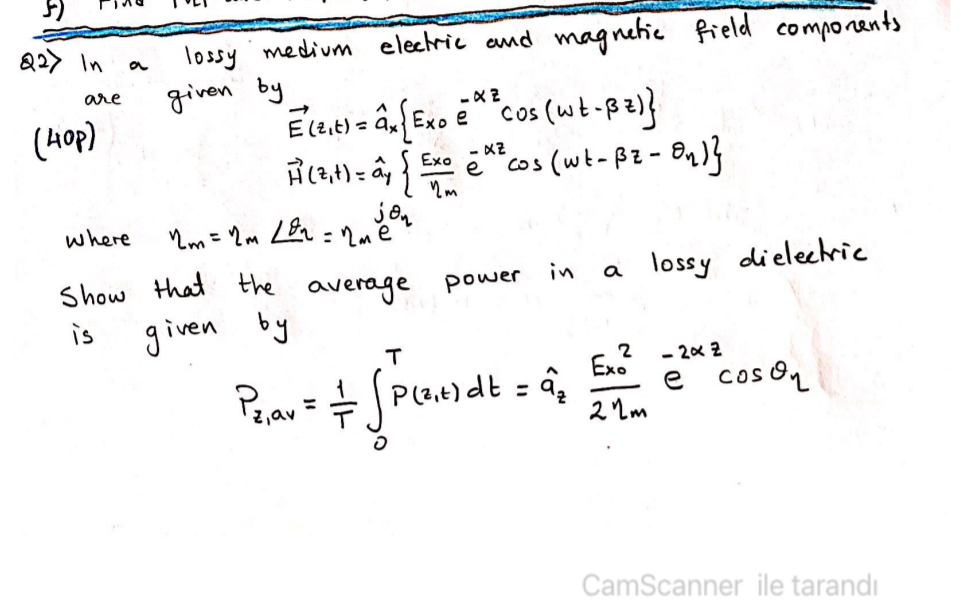 f) Find
Q2> In a lossy medium electric and magnetic field components
are given by
(40p)
E⃗(z,t) = âₓ{Exo e^{-αz} cos(wt-βz)}
H⃗(z,t) = â_y { Exo/ηm e^{-αz} cos(wt-βz-θη)}
where ηm = ηm ∠θη = ηm e^{jθη}
Show that the average power in a lossy dielectric
is given by
P_{z,av} = 1/T ∫₀ᵀ P(z,t) dt = â_z Exo²/2ηm e^{-2αz} cosθη
CamScanner ile tarandı